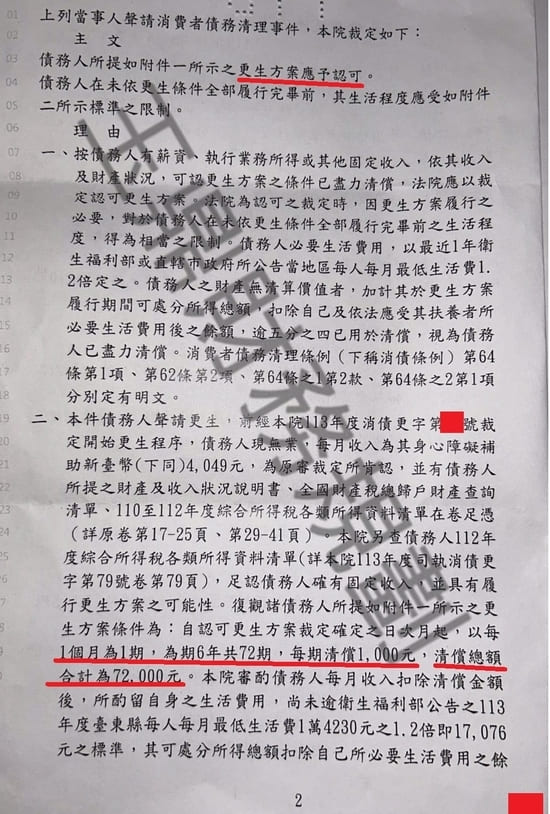 01 上列當事人聲請消費者債務清理事件，本院裁定如下：
02 主 文
03 債務人所提如附件一所示之更生方案應予認可。
04 債務人在未依更生條件全部履行完畢前，其生活程度應受如附件
05 二所示標準之限制。
06 理 由
07 一、按債務人有薪資、執行業務所得或其他固定收入，依其收入
08 及財產狀況，可認更生方案之條件已盡力清償，法院應以裁
09 定認可更生方案。法院為認可之裁定時，因更生方案履行之
10 必要，對於債務人在未依更生條件全部履行完畢前之生活程
11 度，得為相當之限制。債務人必要生活費用，以最近1年衛
12 生福利部或直轄市政府所公告當地區每人每月最低生活費1.
13 2倍定之。債務人之財產無清算價值者，加計其於更生方案
14 履行期間可處分所得總額，扣除自己及依法應受其扶養者所
15 必要生活費用後之餘額，逾五分之四已用於清償，視為債務
16 人已盡力清償。消費者債務清理條例（下稱消債條例）第64
17 條第1項、第62條第2項、第64條之1第2款、第64條之2第1項
18 分別定有明文。
19 二、本件債務人聲請更生，前經本院113年度消債更字第 號裁
20 定開始更生程序，債務人現無業，每月收入為其身心障礙補
21 助新臺幣(下同)4,049元，為原審裁定所肯認，並有債務人
22 所提之財產及收入狀況說明書、全國財產稅總歸戶財產查詢
23 清單、110至112年度綜合所得稅各類所得資料清單在卷足憑
24 （詳原卷第17-25頁、第29-41頁）。本院另查債務人112年
25 度綜合所得稅各類所得資料清單(詳本院113年度司執消債更
26 字第79號卷第79頁)，足認債務人確有固定收入，並具有履
27 行更生方案之可能性。復觀諸債務人所提如附件一所示之更
28 生方案條件為：自認可更生方案裁定確定之日次月起，以每
29 1個月為1期，為期6年共72期，每期清償1,000元，清償總額
30 合計為72,000元。本院審酌債務人每月收入扣除清償金額
31 後，所酌留自身之生活費用，尚未逾衛生福利部公告之113
年度臺東縣每人每月最低生活費1萬4230元之1.2倍即17,076
元之標準，其可處分所得總額扣除自己所必要生活費用之餘
2